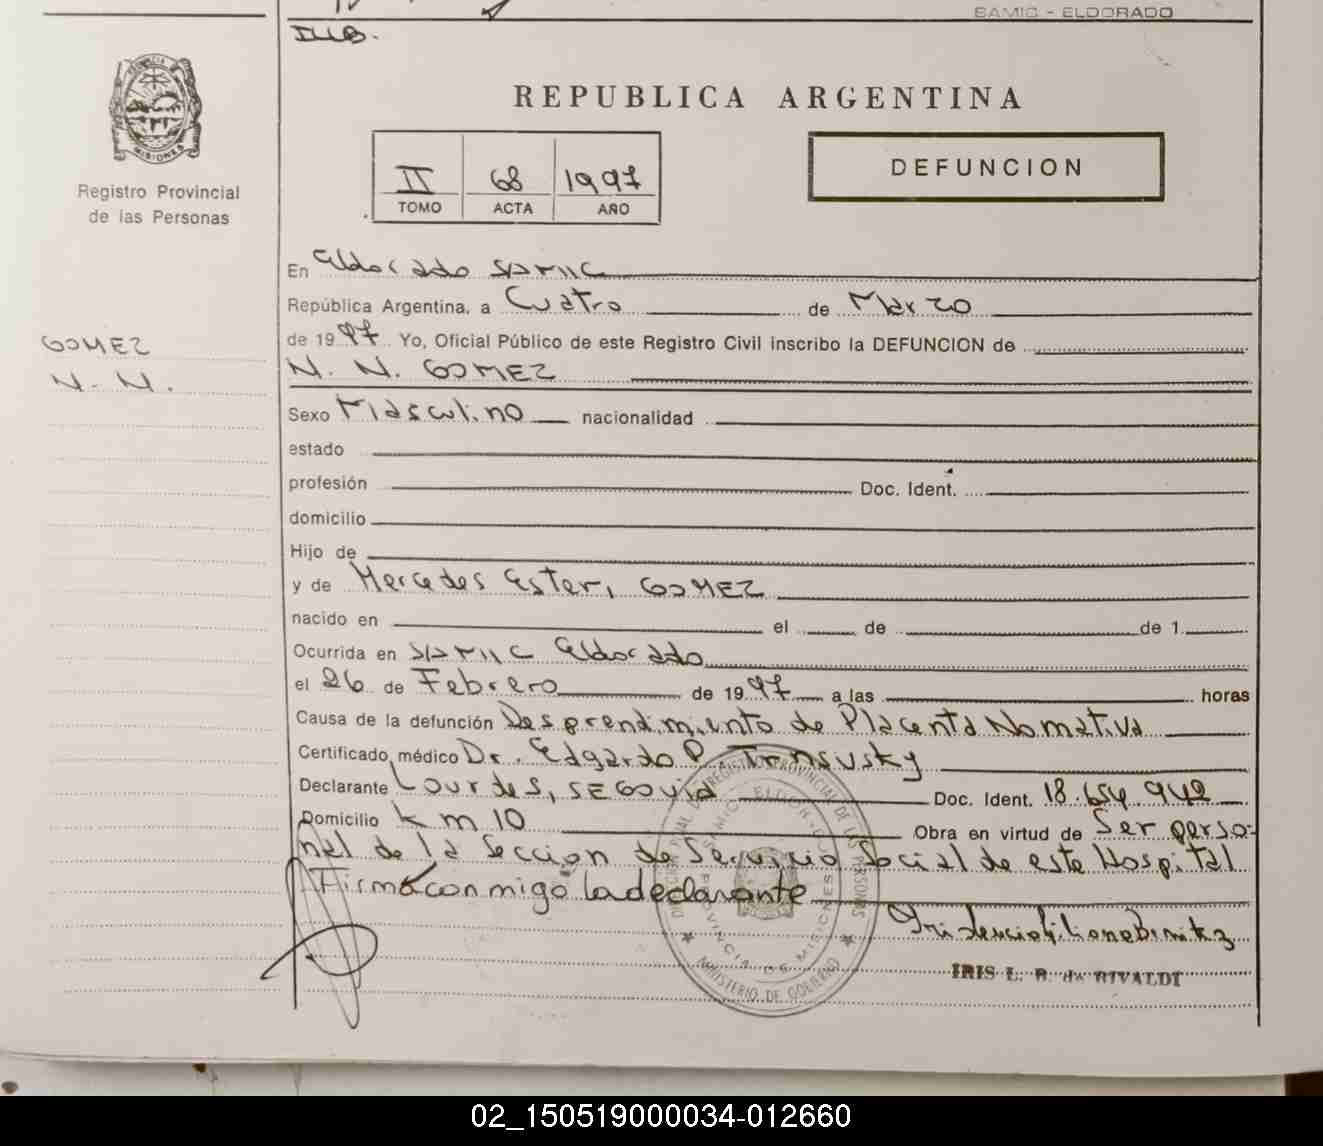 SAMIC - ELDORADO
REPUBLICA ARGENTINA
PROVINCIA DE
MISIONES
Registro Provincial
de las Personas
II 68 1997
TOMO ACTA AÑO
DEFUNCION
En Eldorado SAMIC
República Argentina, a Cuatro de Marzo
de 1997 Yo, Oficial Público de este Registro Civil inscribo la DEFUNCION de
GOMEZ
N. N.
N. N. GOMEZ
Sexo Masculino nacionalidad
estado
profesión Doc. Ident.
domicilio
Hijo de
y de Mercedes Ester, GOMEZ
nacido en el de de 1
Ocurrida en SAMIC Eldorado
el 26 de Febrero de 1997 a las horas
Causa de la defunción Desprendimiento de Placenta Nomativa
Certificado médico Dr. Edgardo P.
Declarante Lourdes, SEGOVIA Doc. Ident. 18.654.942
Domicilio Km 10 Obra en virtud de Ser perso-
nal de la Seccion de Servicio Social de este Hospital
Firma conmigo la declarante
REGISTRO PROVINCIAL DE LAS PERSONAS
PROVINCIA DE MISIONES
MINISTERIO DE GOBIERNO
IRIS L. B. de RIVALDI
02_150519000034-012660